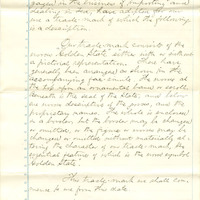 gaged in the business of importing and
dealing in teas, have adopted for our
use a Trade-mark of which the following
is a description.
Our trade-mark consists of the
words Golden State, either with or without
a pictorial representation. These have
generally been arranged as shown in the
accompanying fac-simile. The words at
the top upon an ornamental band or scroll
beneath is the seal of the State, and below
are words descriptive of the goods, and the
proprietary names. The whole is enclosed
in a border, but the border may be changed
or omitted, or the figures or words may be
changed or omitted without materially al-
tering the character of our trade-mark, the
essential feature of which is the words symbol
Golden State.
This trade-mark we shall com-
mence to use from this date.